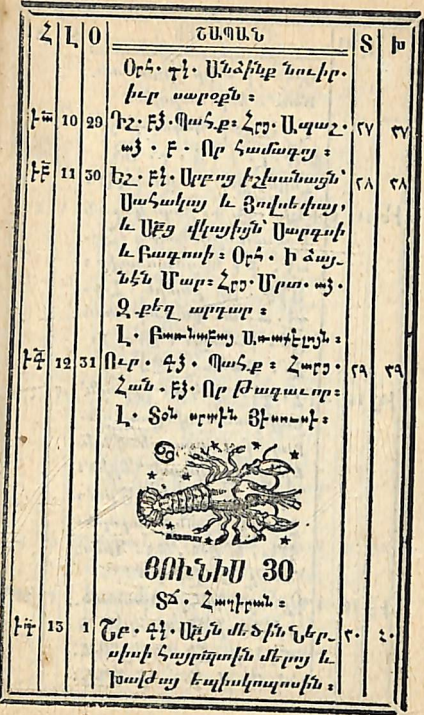 Հ Լ Օ ՇԱՊԱՆ Տ Խ
Օրհ. դկ. Անձինք նուիր.
եւր սարօքն :
10 29 Դշ. բձ. Պահ.ք: Հրց. Ապաշ. ۲۷ ۳۷
աձ. բ. Որ համագոյ :
11 30 Եշ. բկ. Սրբոց իշխանացն՝ ۲۸ ۳۸
Սահակոյ և Յովսեփայ,
և Սքց վկայիցն՝ Սարգսի
և Բագոսի : Օրհ. Ի ձայ_
նէն Մար: Հրց. Մրտ. աձ.
Զքեզ արդար :
Լ. Բառնաբայ Առաքելոյն :
12 31 Ուր. գձ. Պահ.ք : Հարց. ۲۹ ۳۹
Համ. բձ. Որ թագաւոր:
Լ. Տօն սրտին Յիսուսի :
ՅՈՒՆԻՍ 30
Տճ. Հազիրան :
13 1 Շբ. գկ. Սքյն մեծին Ներ_
սիսի հայրպտին մերոյ և
խաթայ եպիսկոպոսին :